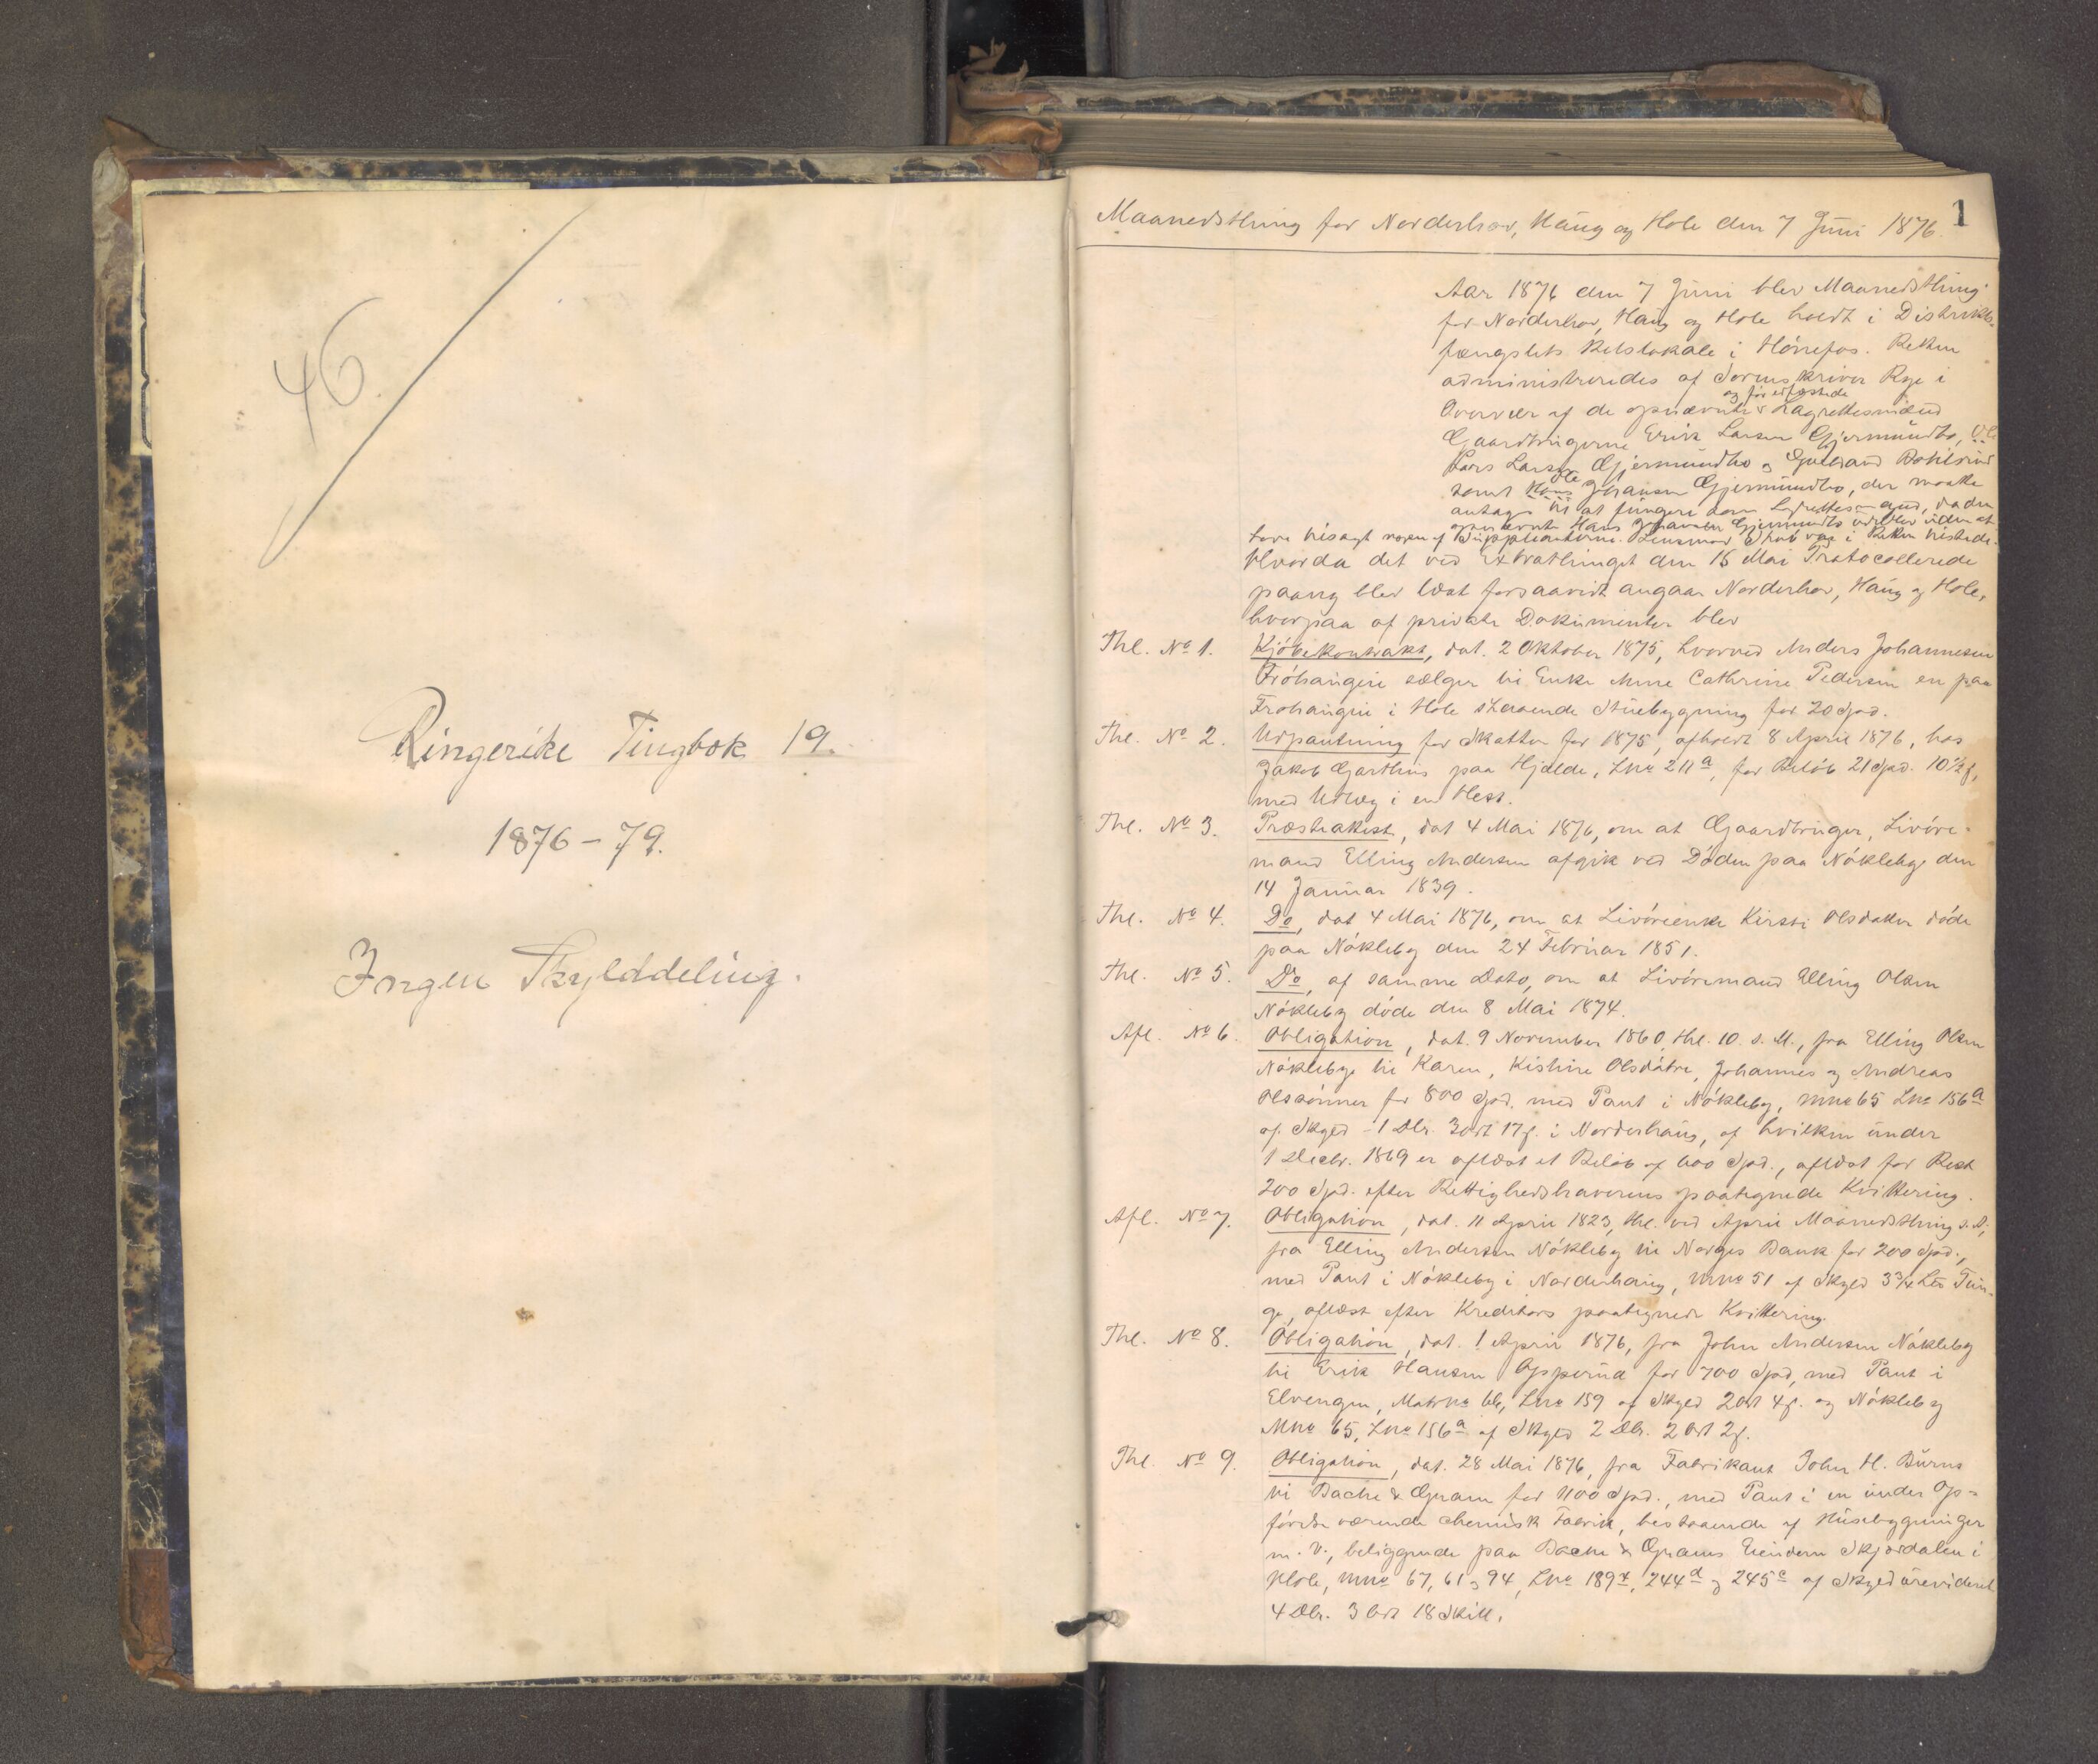 46
Ringerike Tingbok 19.
1876-79.
Ingen Skylddeling.
1
Maanedsthing for Norderhov, Haug og Hole den 7 Juni 1876
Aar 1876 den 7 Juni blev Maanedsthing
for Norderhov, Haug og Hole holdt i Distrikts-
fængslets Retslokale i Hønefos. Retten
administreredes af Sorenskriver Rye i
Overvær af de opnævnte og før edfæstede Lagrettesmænd
Gaardbrugerne Erik Larsen Gjermundbo,
Lars Larsen Gjermundbo og Gulbrand
samt Hans Ole Johansen Gjermundbo, der maatte
antages til at fungere som Lagrettesmand, da den
opnævnte Hans Johansen Gjermundbo udeblev uden at
have tilsagt nogen af Suppleanterne. Lensmand var i Retten tilstede.
Hvorda det ved Extrathinget den 15 Mai Protocollerede
paany blev læst forsaavidt angaar Norderhov, Haug og Hole,
hvorpaa af private Dokumenter blev
Thl. No 1. Kjøbekontrakt, dat. 2 Oktober 1875, hvorved Anders Johannesen
Frøhaugen sælger til Enke Anne Cathrine Pedersen en paa
Frøhaugen i Hole staaende Stuebygning for 20 Spd.
Thl. No 2. Udpantning for Skatter for 1875, afholdt 8 April 1876, hos
Jakob Garthus paa Hjelde, Lno 211a, for Beløb 21 Spd. 10 1/2 ſ,
med Udlæg i en Hest.
Thl. No 3. Præsteattest, dat 4 Mai 1876, om at Gaardbruger, Livøre-
mand Elling Andersen afgik ved Døden paa Nøkleby den
14 Januar 1839.
Thl. No 4. Do, dat 4 Mai 1876, om at Livøreenke Kirsti Olsdatter døde
paa Nøkleby den 24 Februar 1851.
Thl. No 5. Do, af samme Dato, om at Livøremand Elling Olsen
Nøkleby døde den 8 Mai 1874.
Afl. No 6. Obligation, dat. 9 November 1860, thl. 10. s. M., fra Elling Olsen
Nøkleby til Karen, Kistine Olsdøtre, Johannes og Andreas
Olssønner for 800 Spd. med Pant i Nøkleby, Mno 65 Lno 156a
af Skyld - 1 Dlr. 3 Ort 17 ſ. i Norderhaug, af hvilken under
1 Decbr. 1869 er aflæst et Beløb af 600 Spd., aflæst for Rest
200 Spd. efter Rettighedshaverens paategnede Kvittering.
Afl. No 7. Obligation, dat. 11 April 1823, thl. ved April Maanedsthing s. A.,
fra Elling Andersen Nøkleby til Norges Bank for 200 Spd.,
med Pant i Nøkleby i Norderhaug, Mno 51 af Skyld 3 3/4 Lb Tun-
ge, aflæst efter Kreditors paategnede Kvittering.
Thl. No 8. Obligation, dat. 1 April 1876, fra John Andersen Nøkleby
til Erik Hansen Opperud for 700 Spd, med Pant i
Elvengen, Matrno 66, Lno 159 af Skyld 2 Ort 4 ſ. og Nøkleby
Mno 65, Lno 156a af Skyld 2 Dlr. 2 Ort 2 ſ.
Thl. No 9. Obligation, dat. 28 Mai 1876, fra Fabrikant John H. Burns
til Bache & Gram for 1100 Spd., med Pant i en under Op-
førelse værende chemisk Fabrik, bestaaende af Husebygninger
m. v., beliggende paa Bache & Grams Eiendom Skjørdalen i
Hole, Mno 67, 61 og 94, Lno 189x, 244d og 245c af Skyld urevideret
4 Dlr. 3 Ort 18 Skill.